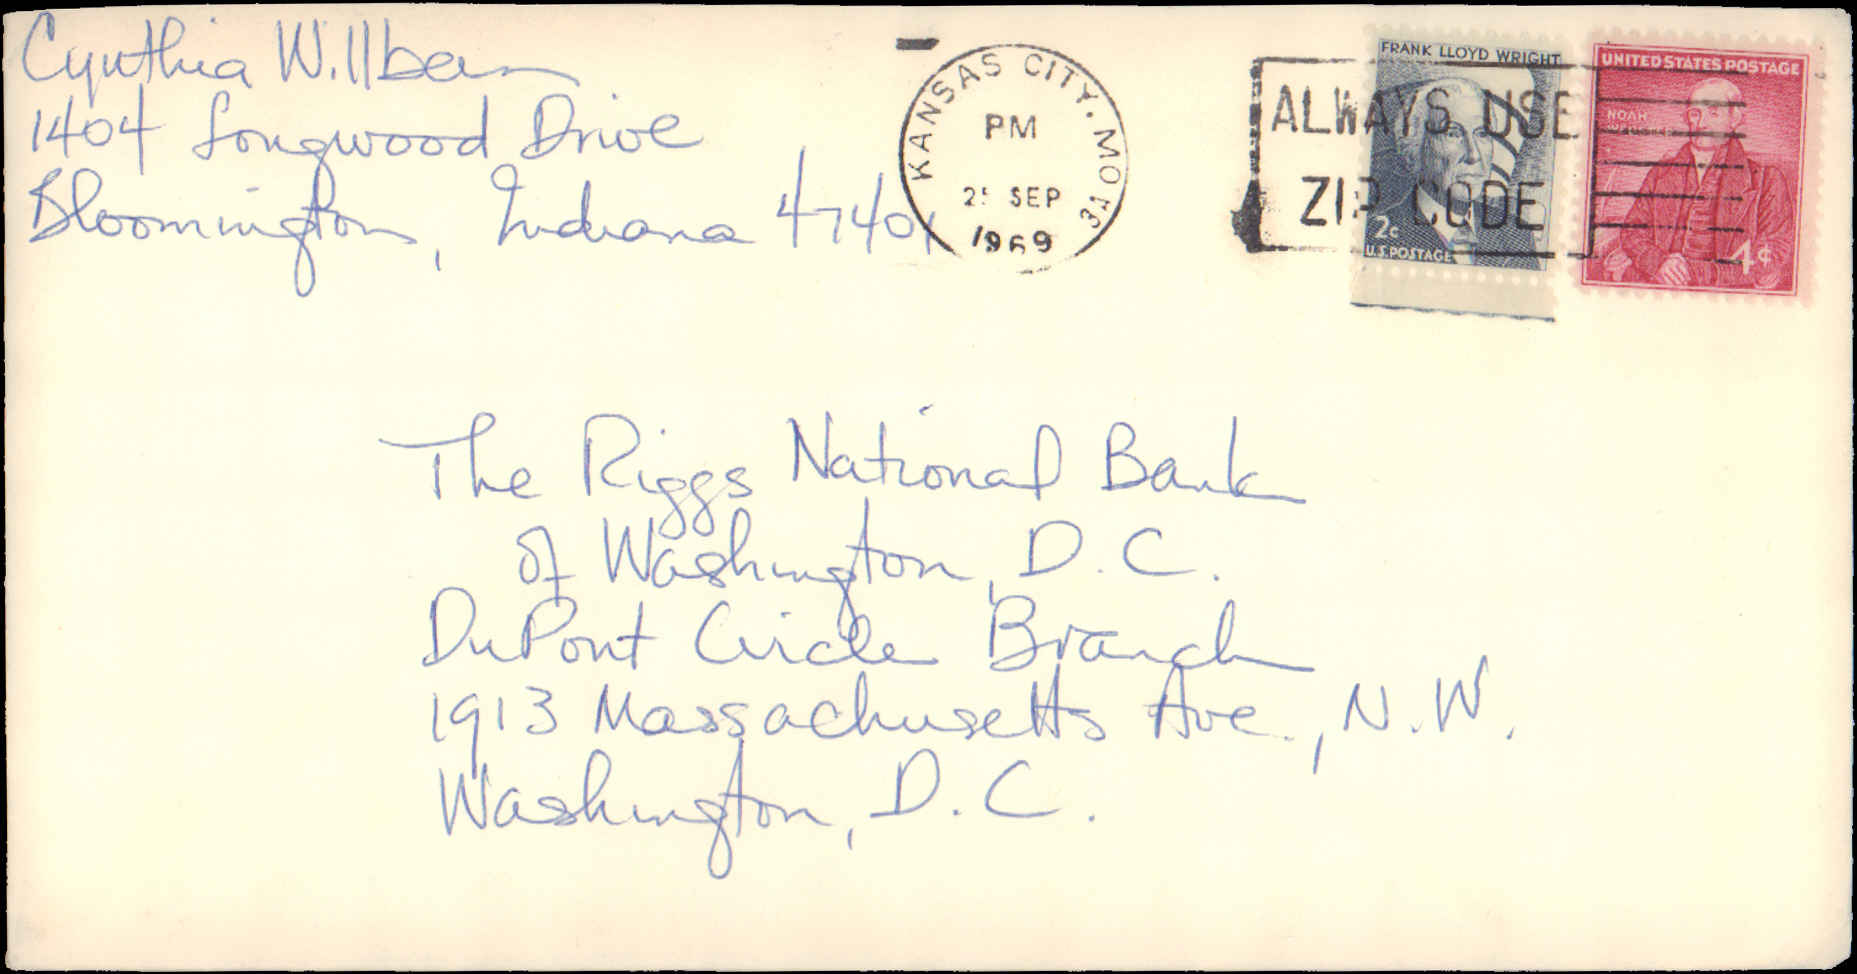 Cynthia Willbern
1404 Longwood Drive
Bloomington, Indiana 47401
KANSAS CITY, MO
PM
SEP
1969
ALWAYS USE
ZIP CODE
FRANK LLOYD WRIGHT
2c
U.S. POSTAGE
UNITED STATES POSTAGE
NOAH
4¢
The Riggs National Bank
of Washington, D.C.
DuPont Circle Branch
1913 Massachusetts Ave., N.W.
Washington, D.C.